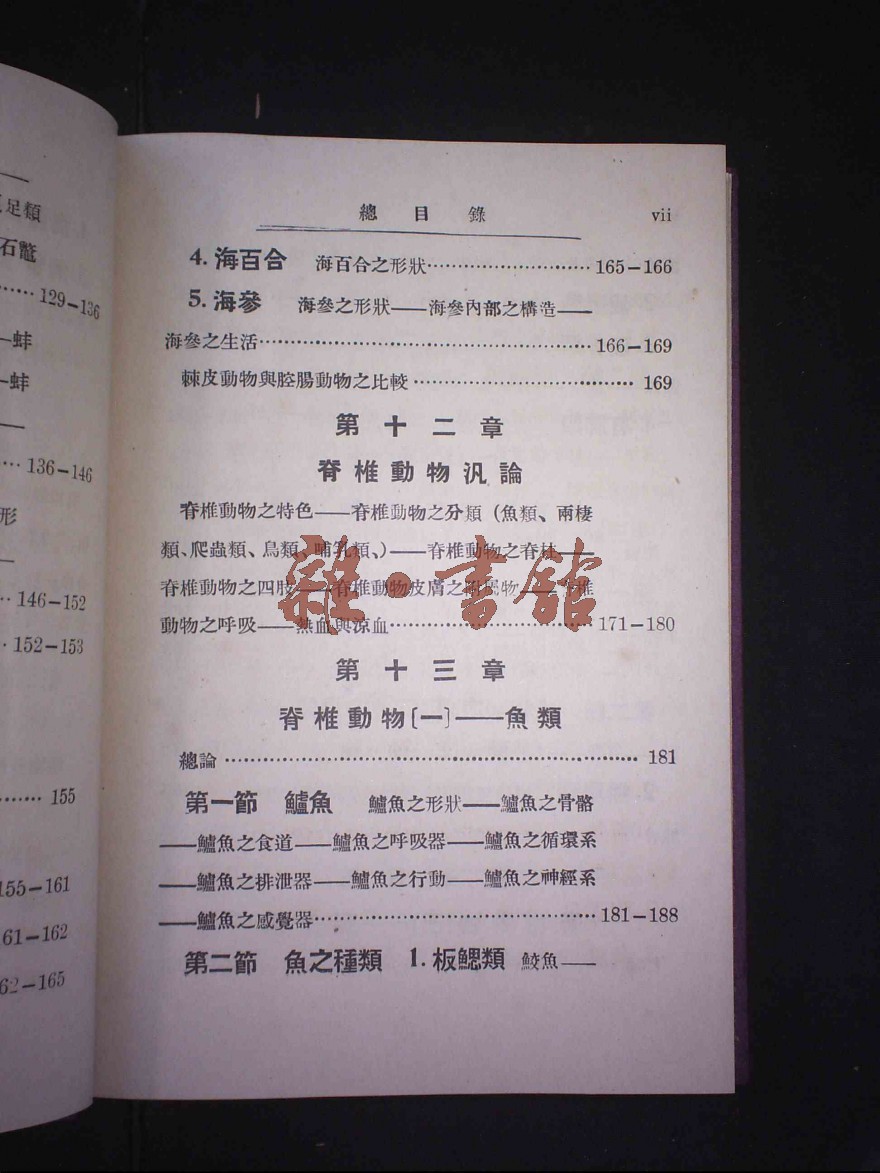 足類
石鼈
129–136
—蚌
—蚌
136–146
形
146–152
152–153
155
155–161
61–162
62–165
總目錄 vii
4. 海百合 海百合之形狀………………………165–166
5. 海參 海參之形狀——海參內部之構造——
海參之生活………………………………………………166–169
棘皮動物與腔腸動物之比較………………………………169
第十二章
脊椎動物汎論
脊椎動物之特色——脊椎動物之分類（魚類、兩棲
類、爬蟲類、鳥類、哺乳類、）——脊椎動物之脊柱——
脊椎動物之四肢——脊椎動物皮膚之附屬物——脊椎
動物之呼吸——熱血與涼血……………………………171–180
第十三章
脊椎動物〔一〕——魚類
總論……………………………………………………………181
第一節 鱸魚 鱸魚之形狀——鱸魚之骨骼
——鱸魚之食道——鱸魚之呼吸器——鱸魚之循環系
——鱸魚之排泄器——鱸魚之行動——鱸魚之神經系
——鱸魚之感覺器………………………………………181–188
第二節 魚之種類 1. 板鰓類 鮫魚——
雜·書館